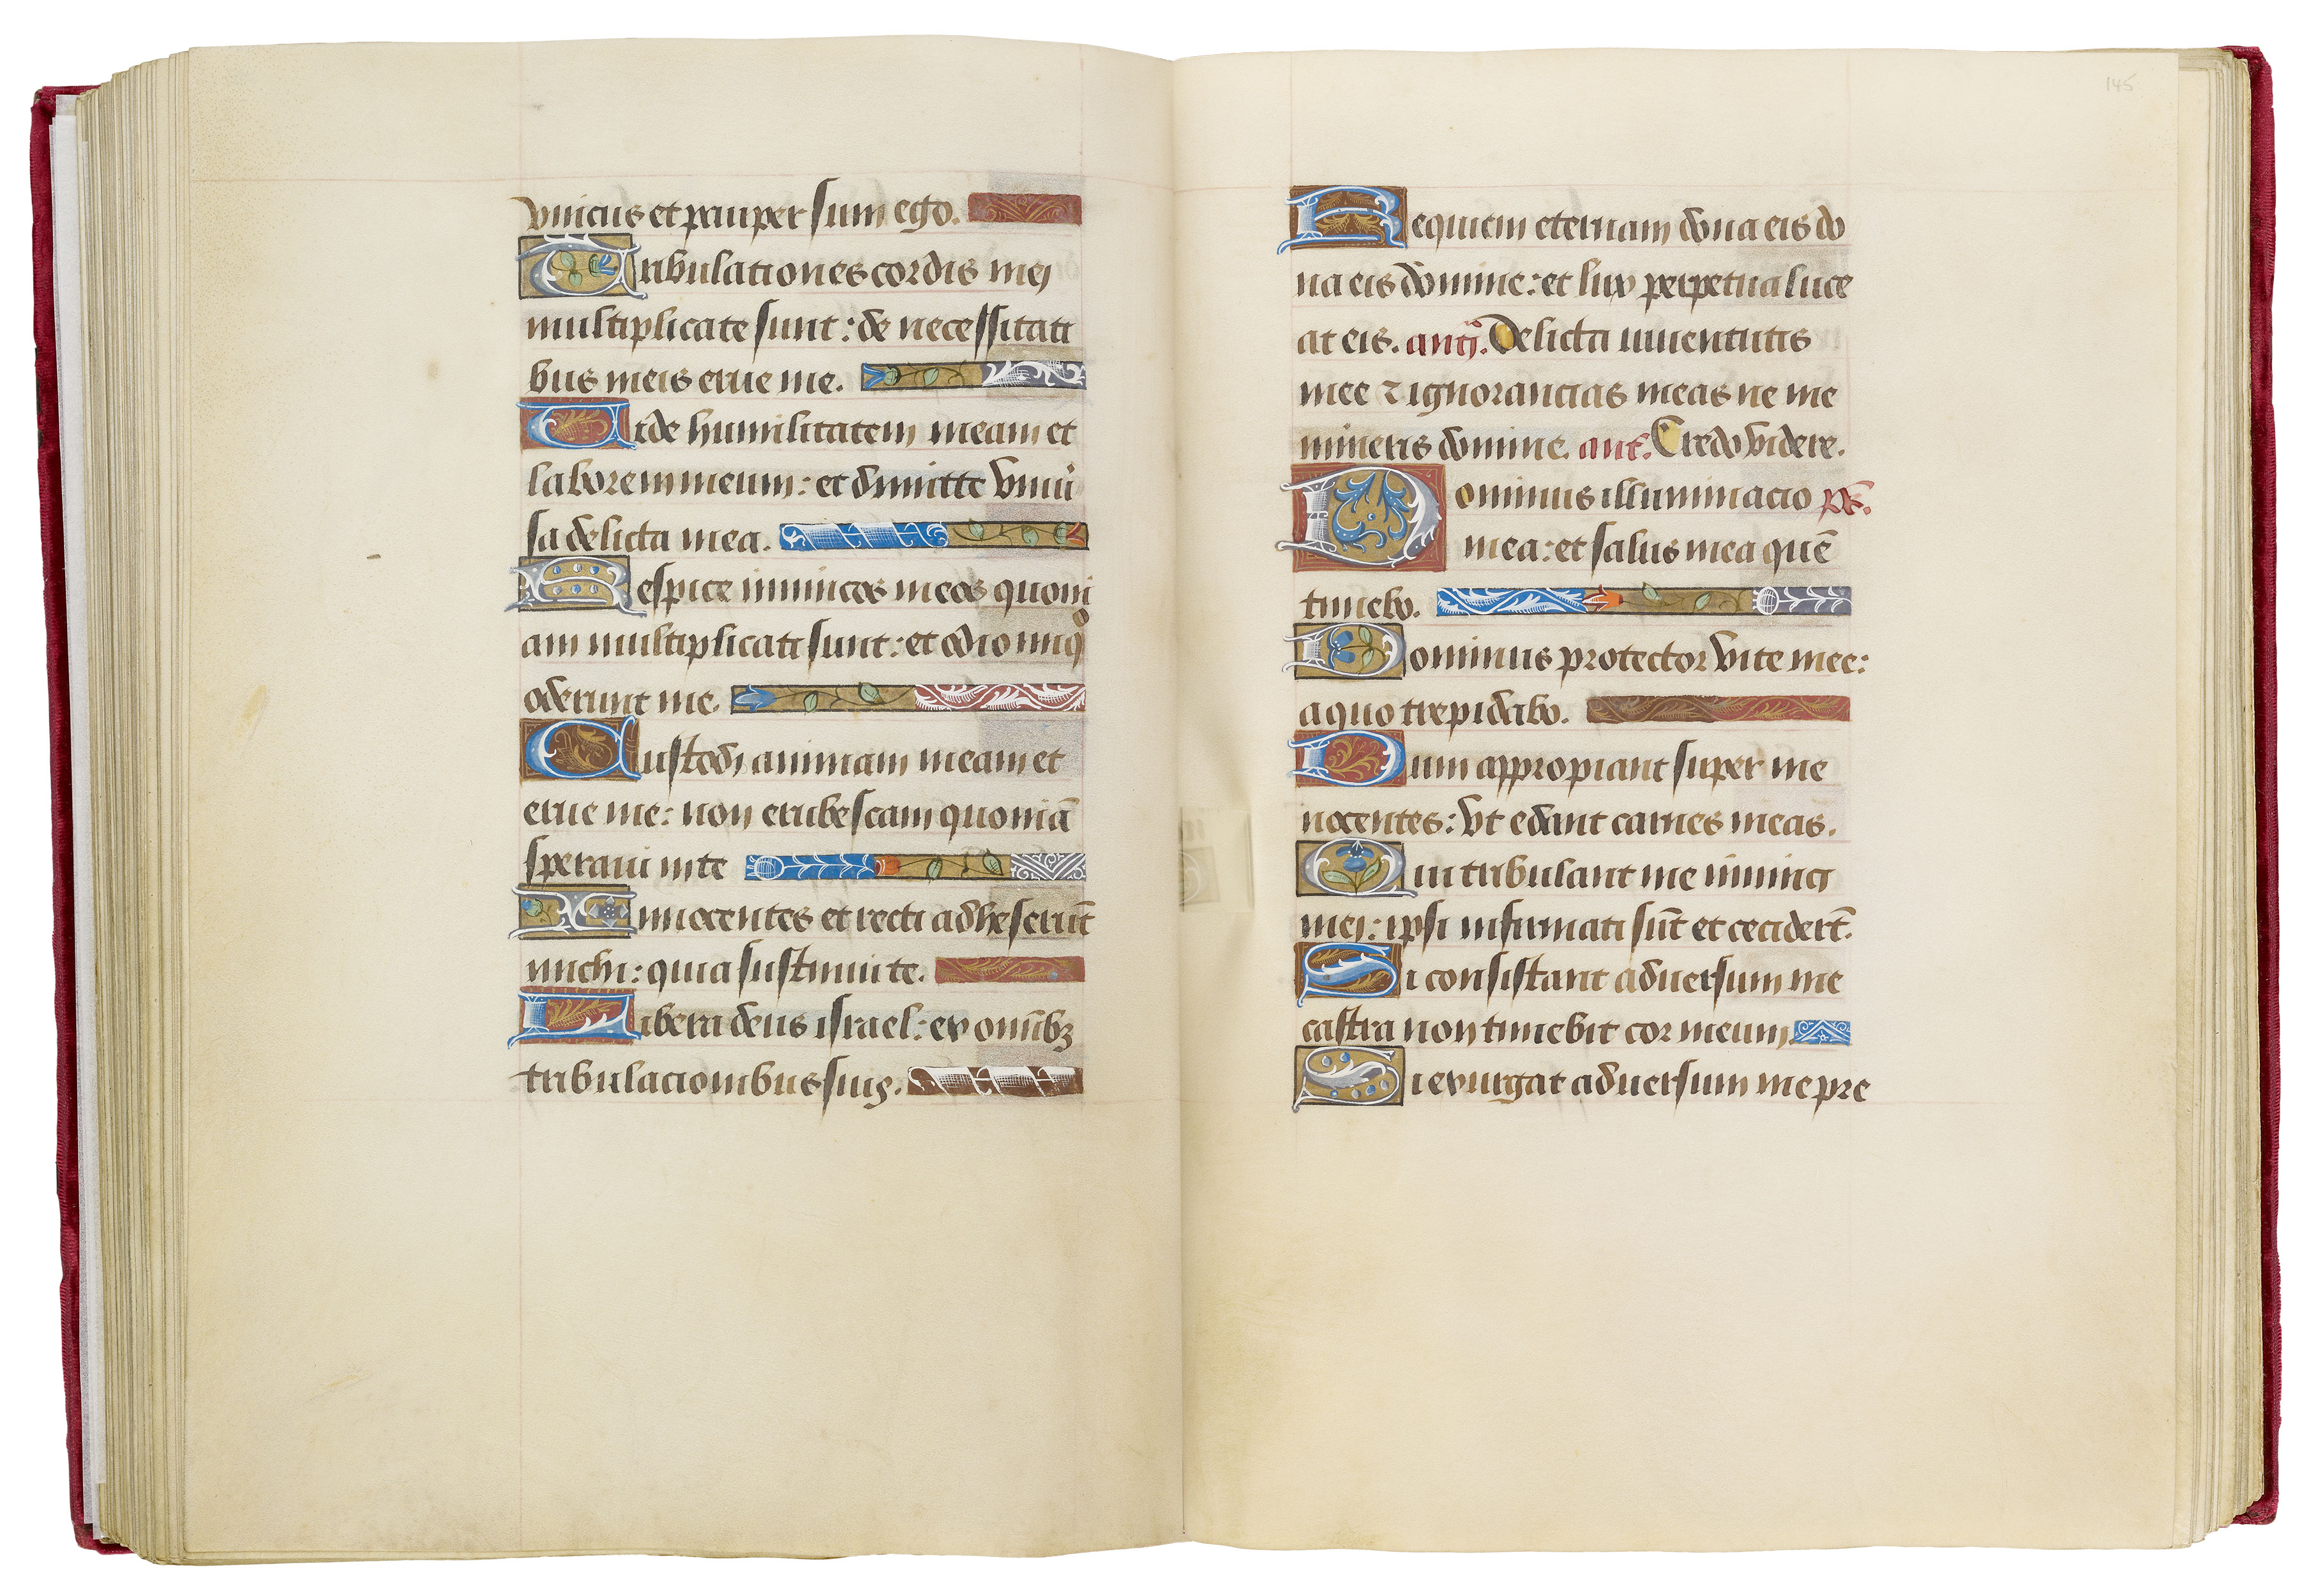 vnicus et pauper sum ego.
Tribulationes cordis mei
multiplicate sunt: de necessitati
bus meis erue me.
Vide humilitatem meam et
laborem meum: et dimitte vniu̾
sa delicta mea.
Respice inimicos meos quoni
am multiplicati sunt: et odio iniqͦ
oderunt me.
Custodi animam meam et
erue me: non erubescam quoniā
speraui in te
Innocentes et recti adheserūt
michi: quia sustinui te.
Libera deus israel: ex omībꝫ
tribulacionibus suis.
145
Requiem eternam dona eis do
na eis domine: et lux perpetua luce
at eis. antͣ. Delicta iuuentutis
mee ⁊ ignorancias meas ne me
mineris domine. ant̄. Credo videre.
Dominus illuminacio ps̄.
mea: et salus mea quē
timebo.
Dominus protector vite mee:
a quo trepidabo.
Dum appropiant super me
nocentes: vt edant carnes meas.
Qui tribulant me inimici
mei: ipsi infirmati sūt et cecidert̄.
Si consistant aduersum me
castra non timebit cor meum
Si exurgat aduersum me pre